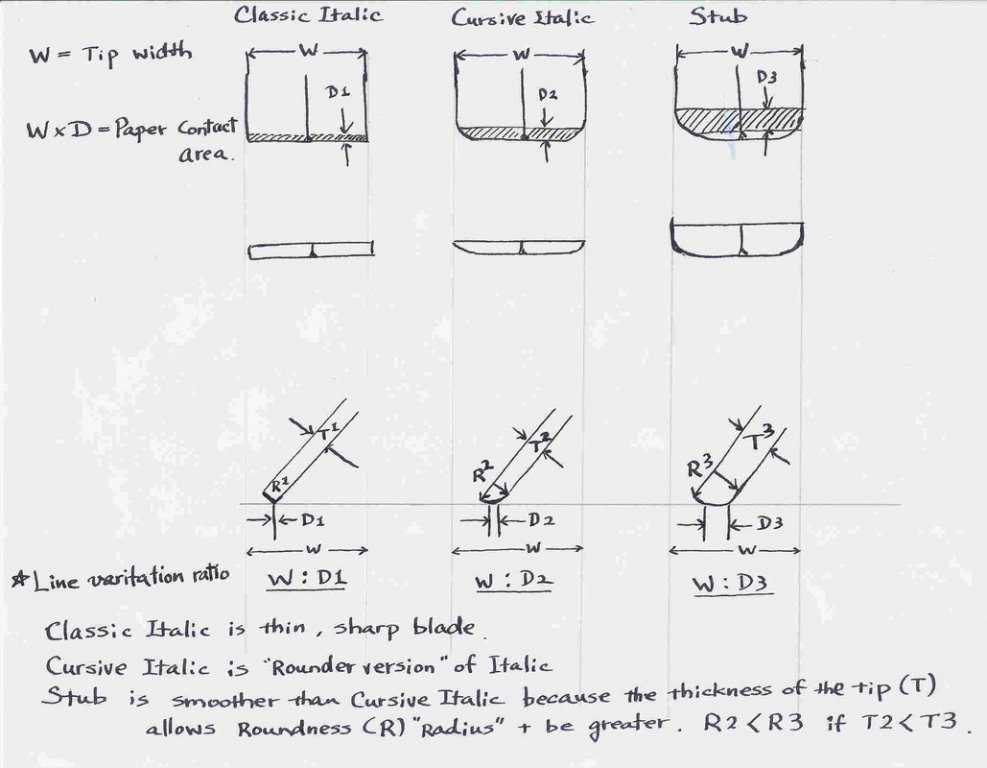 Classic Italic
Cursive Italic
Stub
W = Tip width
W
W
W
D1
D2
D3
W x D = Paper Contact
area.
T1
T2
T3
R1
R2
R3
D1
D2
D3
W
W
W
★ Line varitation ratio
W : D1
W : D2
W : D3
Classic Italic is thin, sharp blade.
Cursive Italic is "Rounder version" of Italic
Stub is smoother than Cursive Italic because the thickness of the tip (T)
allows Roundness (R) "Radius" + be greater. R2 < R3 if T2 < T3.